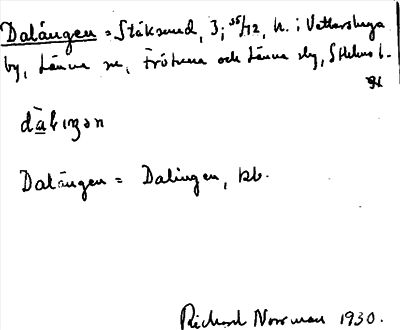 Dalängen = Stáksund, 3; 35/72, h. i Vettershaga
by, Länna sn, Frötuna och Länna sky, Sthlms l.
dàlıŋən
Dalängen = Dalingen, kb.
Rickard Norrman 1930.